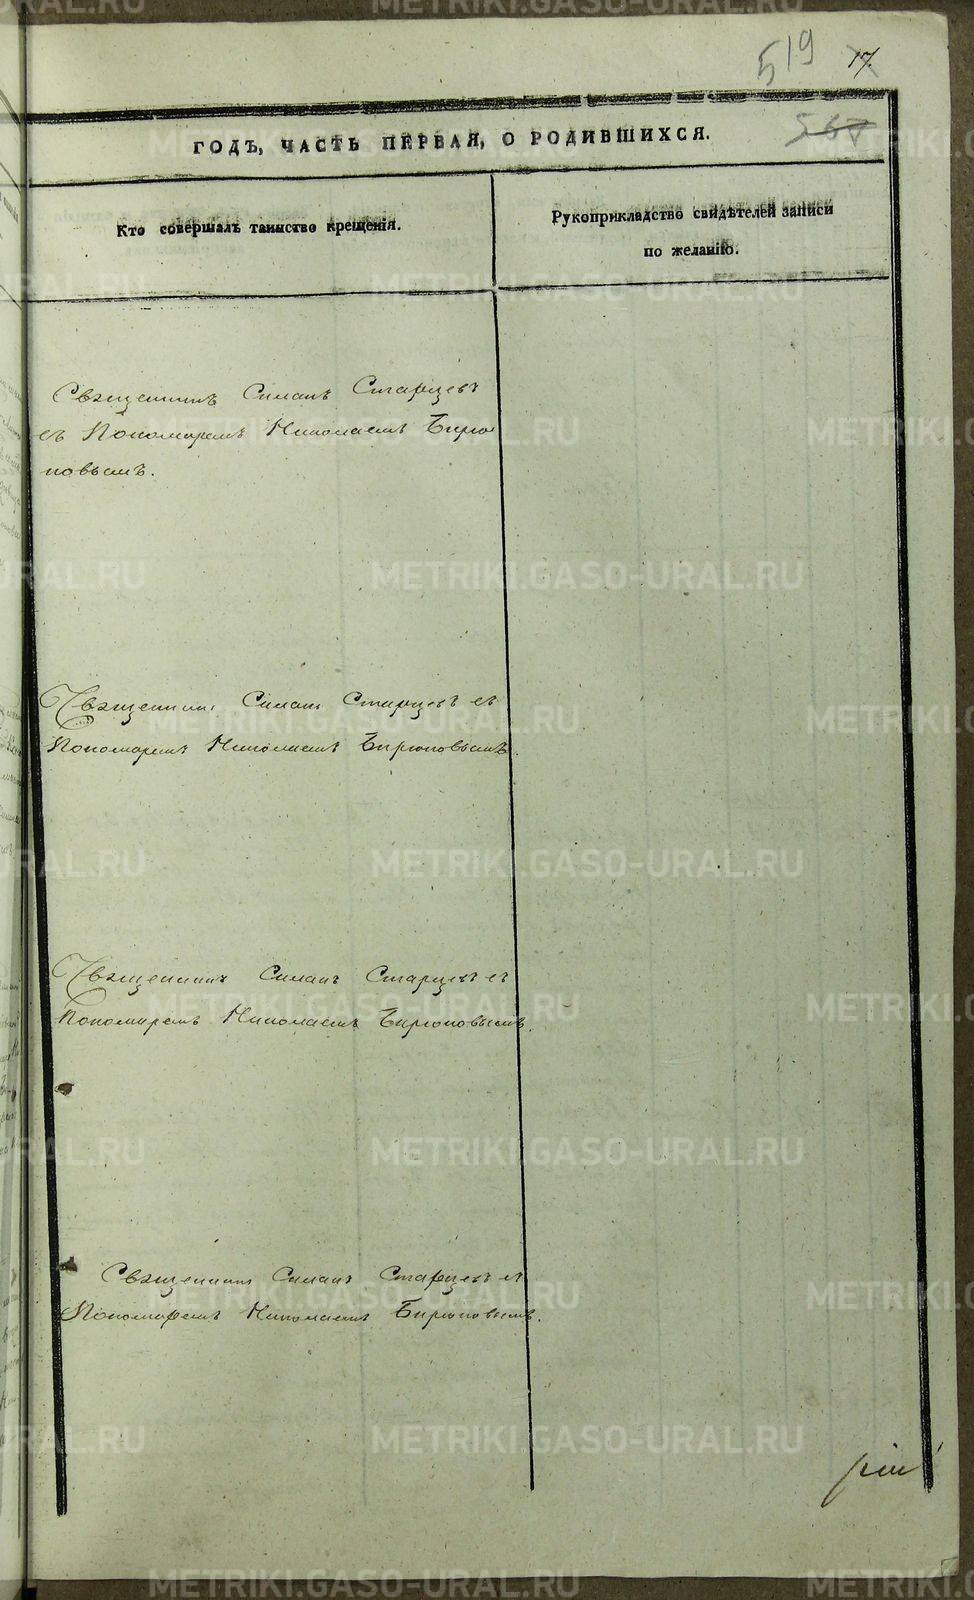 519
17.
567
ГОДЪ, ЧАСТЬ ПЕРВАЯ, О РОДИВШИХСЯ.
Кто совершалъ таинство крещенія.
Рукоприкладство свидѣтелей записи
по желанію.
Священникъ Симанъ Старцевъ
съ Пономаремъ Николаемъ Бирю
ковымъ.
Священникъ Симанъ Старцевъ съ
Пономаремъ Николаемъ Бирюковымъ.
Священникъ Симанъ Старцевъ съ
Пономаремъ Николаемъ Бирюковымъ.
Священникъ Симанъ Старцевъ съ
Пономаремъ Николаемъ Бирюковымъ.
METRIKI.GASO-URAL.RU